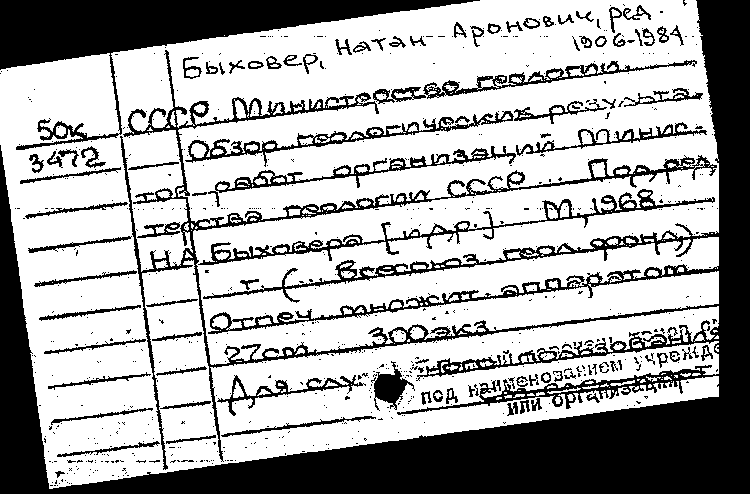 Быховер, Натан Аронович, ред.
1906-1984
50к СССР. Министерство геологии.
3472 Обзор геологических результа-
тов работ организаций Минис-
терства геологии СССР... Под ред.
Н.А. Быховера [и др.]. М., 1968.
т. (... Всесоюз. геол. фонд)
Отпеч. множит. аппаратом
27см. 300 экз.
Для служ. пользования
под наименованием учрежде
или организации